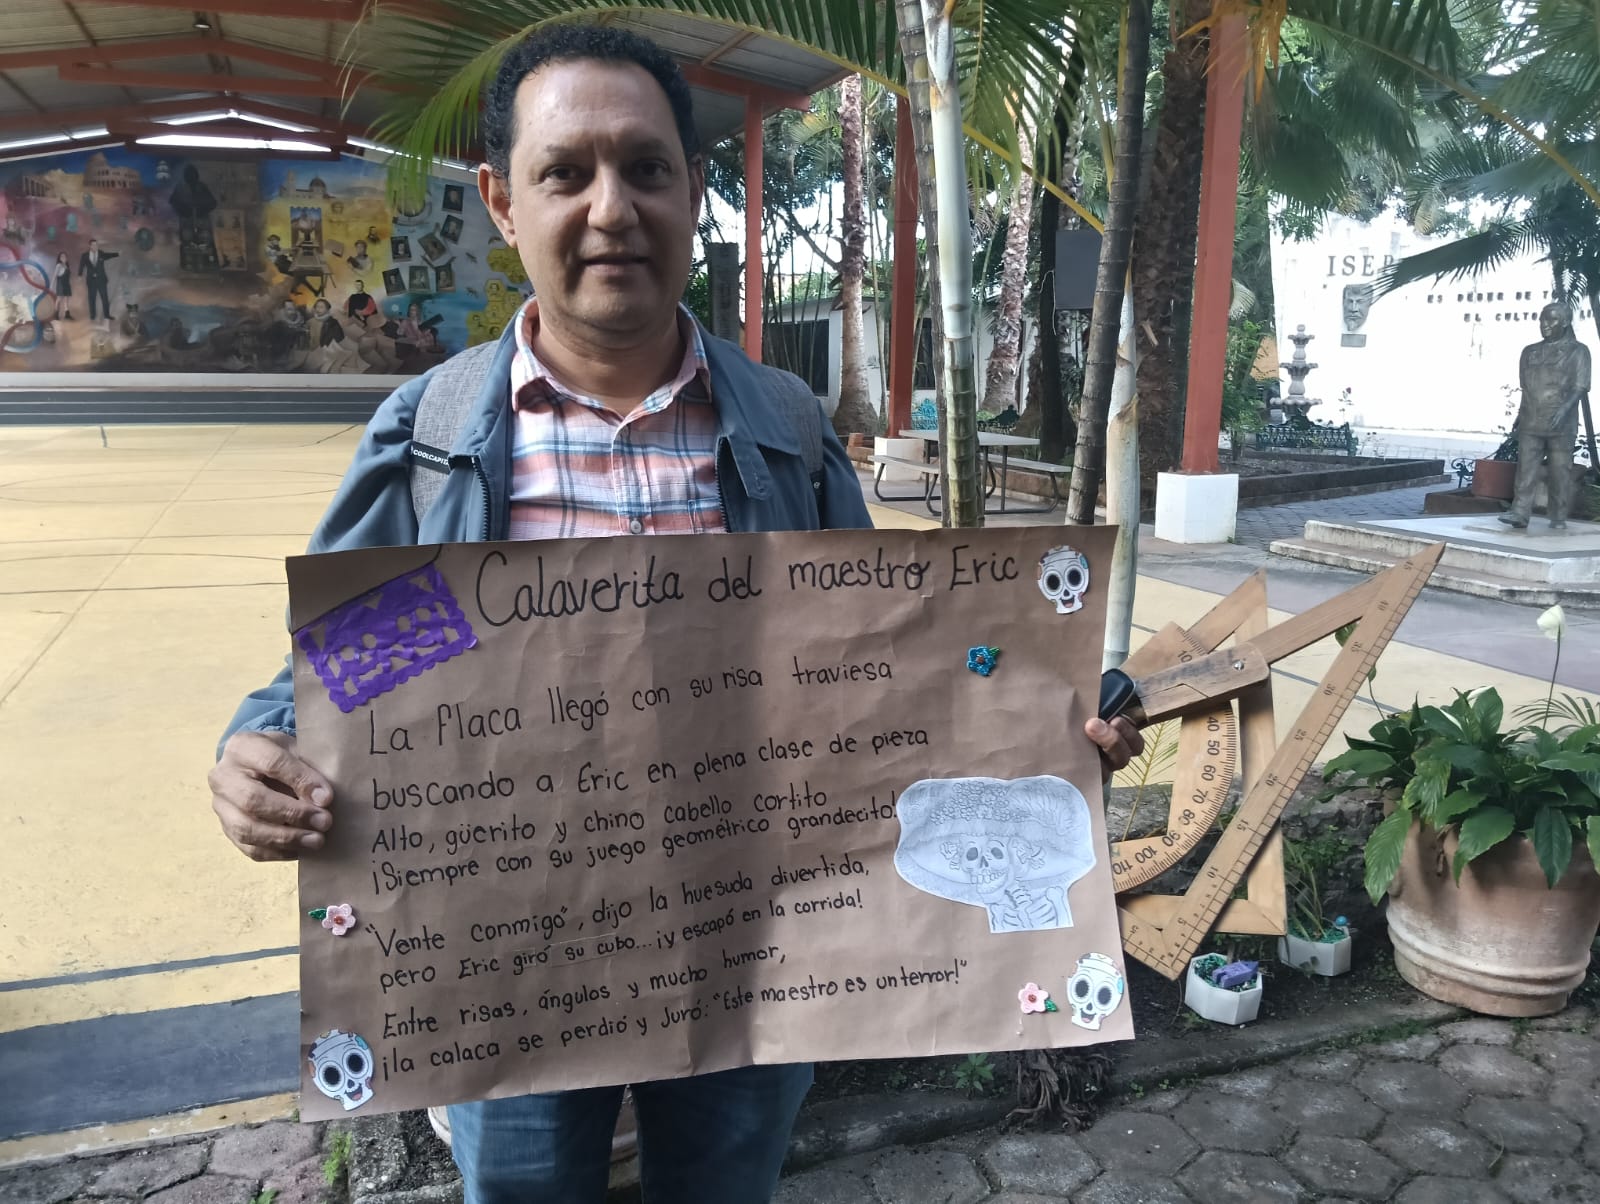 Calaverita del maestro Eric
La flaca llegó con su risa traviesa
buscando a Eric en plena clase de pieza
Alto, güerito y chino cabello cortito
¡Siempre con su juego geométrico grandecito!
"Vente conmigo", dijo la huesuda divertida,
pero Eric giró su cubo...¡y escapó en la corrida!
Entre risas, ángulos y mucho humor,
¡la calaca se perdió y Juró: "Este maestro es un terror!"
COOLCAPITAL
ISEP
ES DEBER DE TO
EL CULTO
10
40
50
60
70
80
90
100
110
45
40
30
25
20
15
10
5